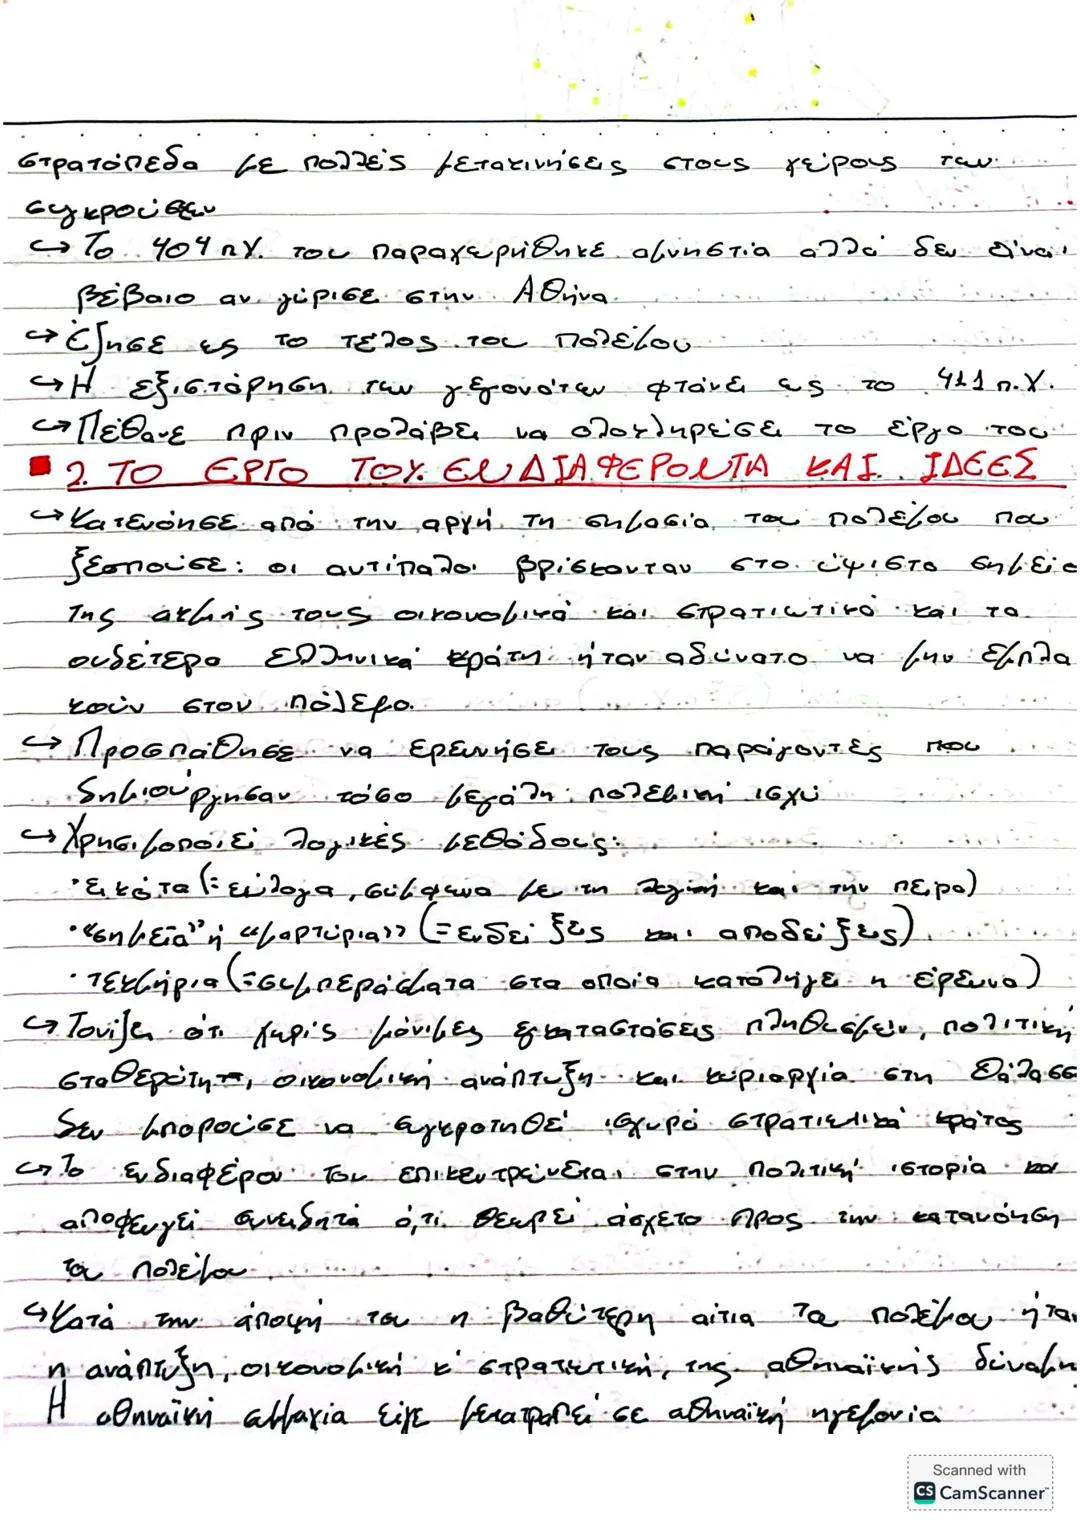 στρατόπεδα με πολλές μετακινήσεις στους χώρους των
συγκρούσεων
↪ Το 404 π.Χ. του παραχωρήθηκε αμνηστία αλλά δεν είναι
βέβαιο αν γύρισε στην Αθήνα
↪ Έζησε ως το τέλος του πολέμου
↪ Η εξιστόρηση των γεγονότων φτάνει ως το 411 π.Χ.
↪ Πέθανε πριν προλάβει να ολοκληρώσει το έργο του
2. ΤΟ ΕΡΓΟ ΤΟΥ. ΕΝΔΙΑΦΕΡΟΝΤΑ ΚΑΙ ΙΔΕΕΣ
↪ Κατενόησε από την αρχή τη σημασία του πολέμου που
ξεσπούσε: οι αντίπαλοι βρίσκονταν στο ύψιστο σημείο
της ακμής τους οικονομικά και στρατιωτικά και τα
ουδέτερα ελληνικά κράτη ήταν αδύνατο να μην εμπλα
κούν στον πόλεμο.
↪ Προσπάθησε να ερευνήσει τους παράγοντες που
δημιούργησαν τόσο μεγάλη πολεμική ισχύ
↪ Χρησιμοποιεί λογικές μεθόδους:
• εικότα (= εύλογα, σύμφωνα με τη λογική και την πείρα)
• "σημεία" ή «μαρτύρια» (= ενδείξεις και αποδείξεις)
• τεκμήρια (= συμπεράσματα στα οποία κατάληγε η έρευνα)
↪ Τονίζει ότι χωρίς μόνιμες εγκαταστάσεις πληθυσμών, πολιτική
σταθερότητα, οικονομική ανάπτυξη και κυριαρχία στη θάλασσ
δεν μπορούσε να συγκροτηθεί ισχυρό στρατιωτικά κράτος
↪ Το ενδιαφέρον του επικεντρώνεται στην πολιτική ιστορία και
αποφεύγει συνειδητά ό,τι θεωρεί άσχετο προς την κατανόηση
του πολέμου
↪ Κατά την άποψή του η βαθύτερη αιτία του πολέμου ήταν
η ανάπτυξη, οικονομική κ' στρατιωτική, της αθηναϊκής δύναμη
Η αθηναϊκή συμμαχία είχε μετατραπεί σε αθηναϊκή ηγεμονία
Scanned with
CS CamScanner